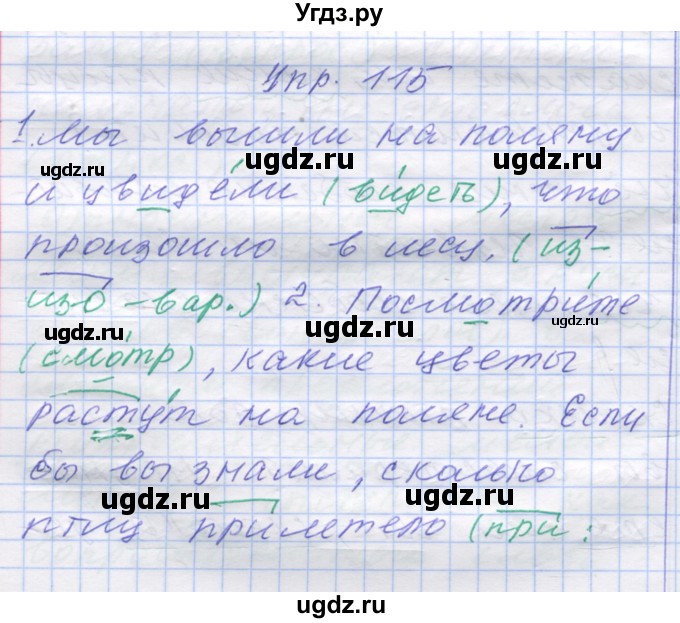 Угдз.ру
Упр. 115
1. Мы вышли на поляну
и увидели (видеть), что
произошло в лесу. (из-
изо - вар.) 2. Посмотрите
(смотр), какие цветы
растут на поляне. Если
бы вы знали, сколько
птиц прилетело (при:
ugdz.ru
ugdz.ru
ugdz.ru
ugdz.ru
ugdz.ru
ugdz.ru
ugdz.ru
ugdz.ru
ugdz.ru